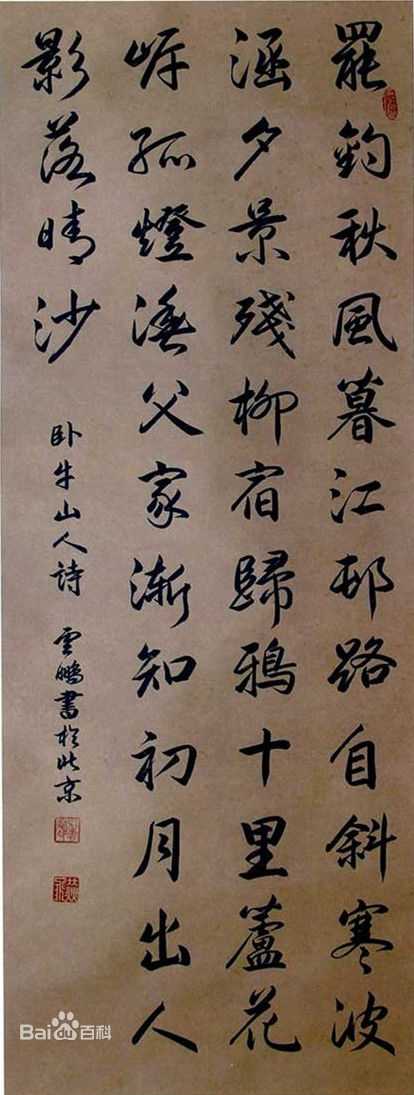 罷釣秋風暮江邨路自斜寒波
涵夕景殘柳宿歸鴉十里蘆花
岸孤燈漁父家漸知初月出人
影落晴沙
卧牛山人詩 雲鵬書於北京
Bai du 百科